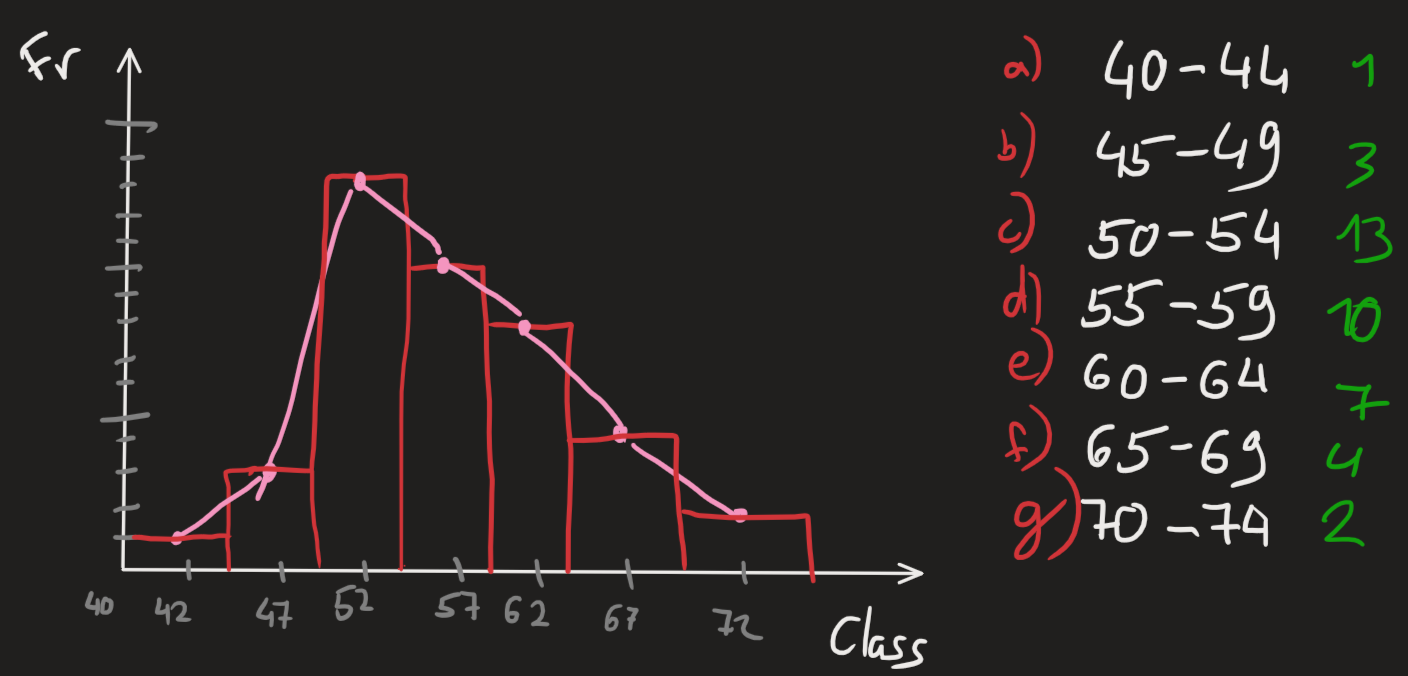 Fr
40 42 47 52 57 62 67 72
Class
a) 40-44 1
b) 45-49 3
c) 50-54 13
d) 55-59 10
e) 60-64 7
f) 65-69 4
g) 70-74 2